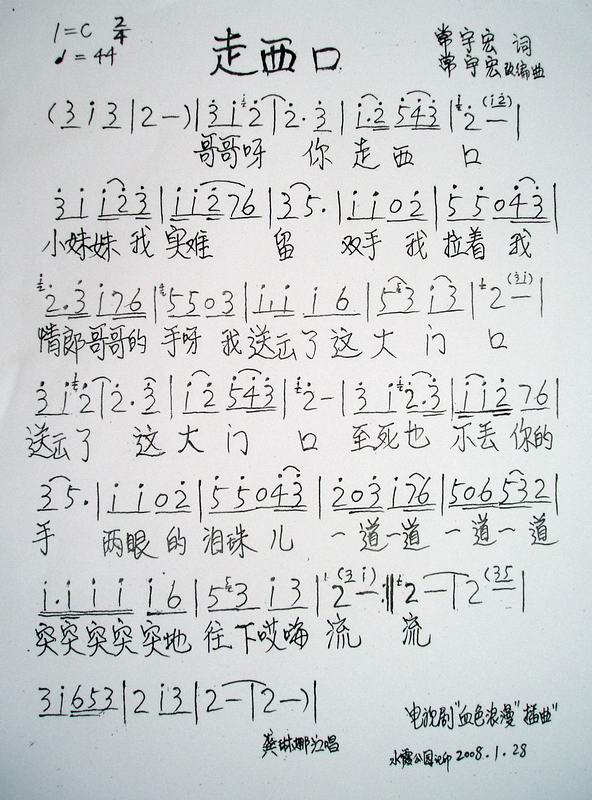 1=C 2/4
♩=44
走西口
常宇宏 词
常宇宏 改编曲
(3 i 3 | 2 — ) | 3 i 2 | 2. 3 | i. 2 5 4 3 | 2 (i 2) — |
哥哥呀 你 走 西 口
3 i i 2 3 | i i 2 7 6 | 3 5. | i i 0 2 | 5 5 0 4 3 |
小妹妹 我 实难 留 双手 我 拉着 我
2. 3 i 7 6 | 5 5 0 3 | i. i i 6 | 5 3 i 3 | 2 (3 i) — |
情郎哥哥的 手呀 我送云了这 大 门 口
3 i 2 | 2. 3 | i 2 5 4 3 | 2 — | 3 i 2. 3 | i i 2 7 6 |
送云了 这 大 门 口 至死也 不丢 你的
3 5. | i i 0 2 | 5 5 0 4 3 | 2 0 3 i 7 6 | 5 0 6 5 3 2 |
手 两眼 的 泪珠 儿 一道一道 一道一道
i. i i i i 6 | 5 3 i 3 | 2 (3 i) — :‖ 2 — | 2 (3 5 — |
突突突突突地 往下哎嗨 流 流
3 i 6 5 3 | 2 i 3 | 2 — | 2 — ) |
电视剧"血色浪漫"插曲"
龚琳娜演唱
2008.1.28